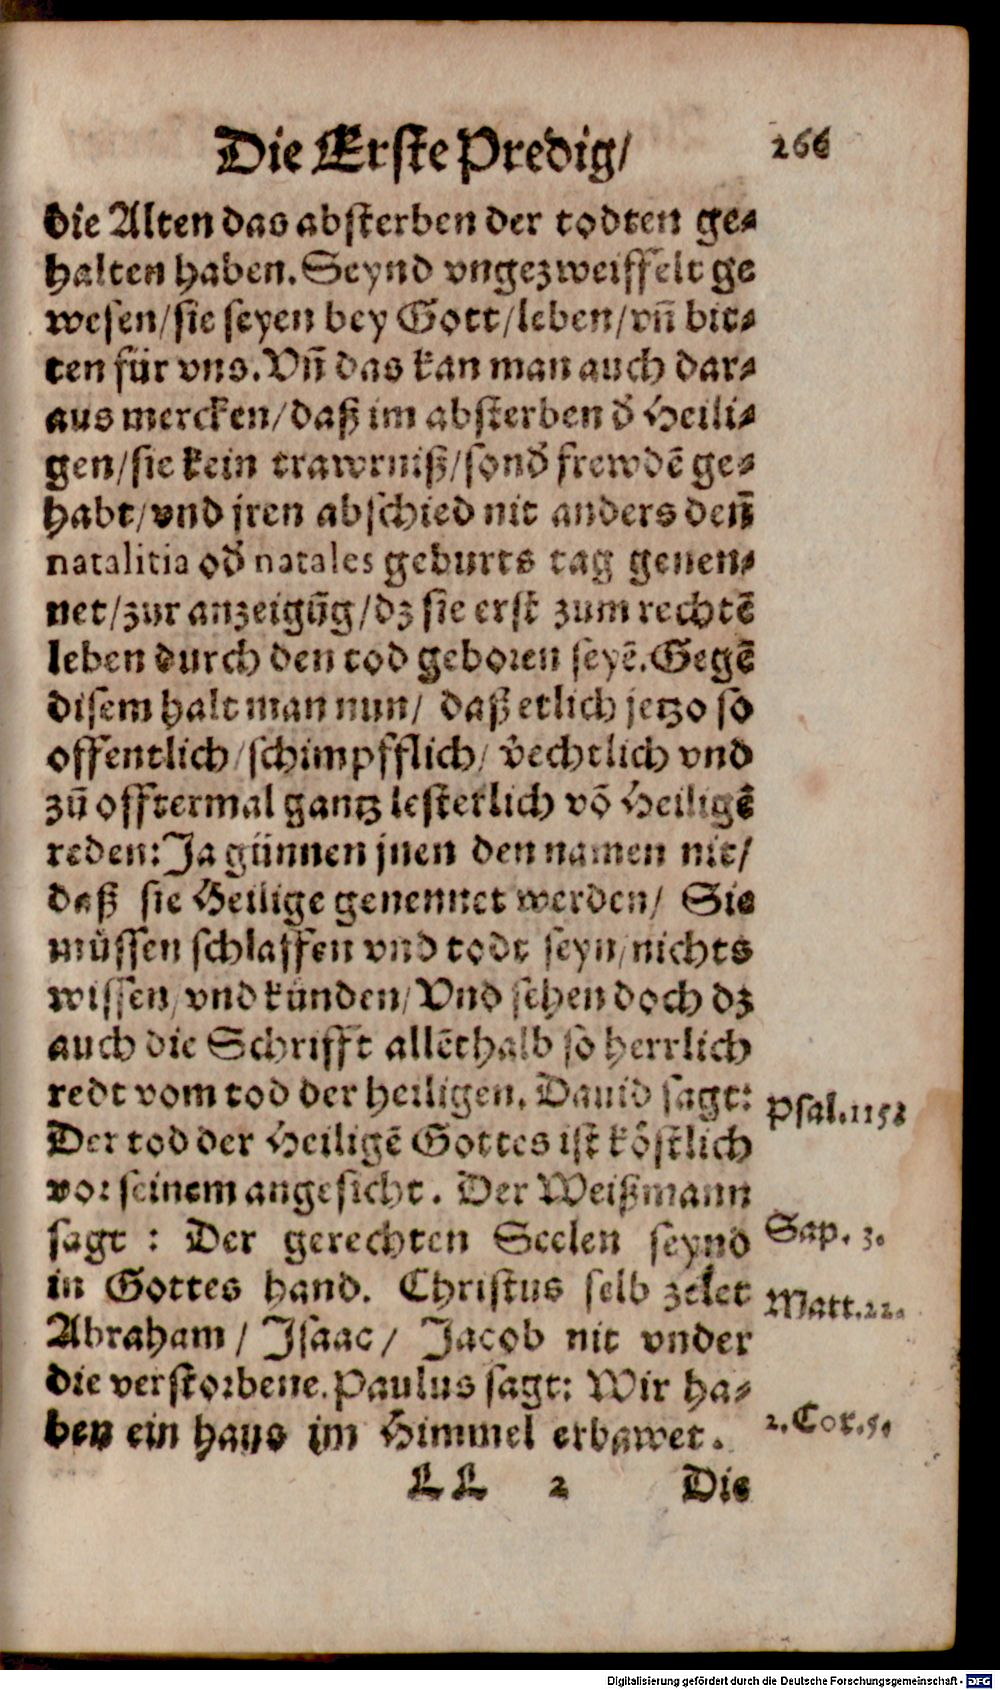 Die Erste Predig/ 266
die Alten das absterben der todten ge⸗
halten haben. Seynd vngezweiffelt ge
wesen/sie seyen bey Gott/leben/vñ bit⸗
ten für vns. Vñ das kan man auch dar⸗
aus mercken/daß im absterben d̕ Heili⸗
gen/sie kein trawrniß/sond̕ frewdẽ ge⸗
habt/vnd jren abschied nit anders deñ
natalitia od̕ natales geburts tag genen⸗
net/zur anzeigũg/dz sie erst zum rechtẽ
leben durch den tod geboren seyẽ. Gegẽ
disem halt man nun/ daß etlich jetzo so
offentlich/schimpfflich/ v̕echtlich vnd
zů offtermal gantz lesterlich võ Heiligẽ
reden: Ja günnen jnen den namen nit/
daß sie Heilige genennet werden/ Sie
müssen schlaffen vnd todt seyn/nichts
wissen/vnd künden/Vnd sehen doch dz
auch die Schrifft allẽthalb so herrlich
redt vom tod der heiligen. Dauid sagt:
Psal.115.
Der tod der Heiligẽ Gottes ist köstlich
vor seinem angesicht. Der Weißmann
sagt : Der gerechten Seelen seynd
Sap. 3.
in Gottes hand. Christus selb zelet
Matt.22.
Abraham/ Isaac/ Jacob nit vnder
die verstorbene. Paulus sagt: Wir ha⸗
ben ein haus im Himmel erbawet.
2.Cor.5.
LL 2 Die
Digitalisierung gefördert durch die Deutsche Forschungsgemeinschaft - DFG